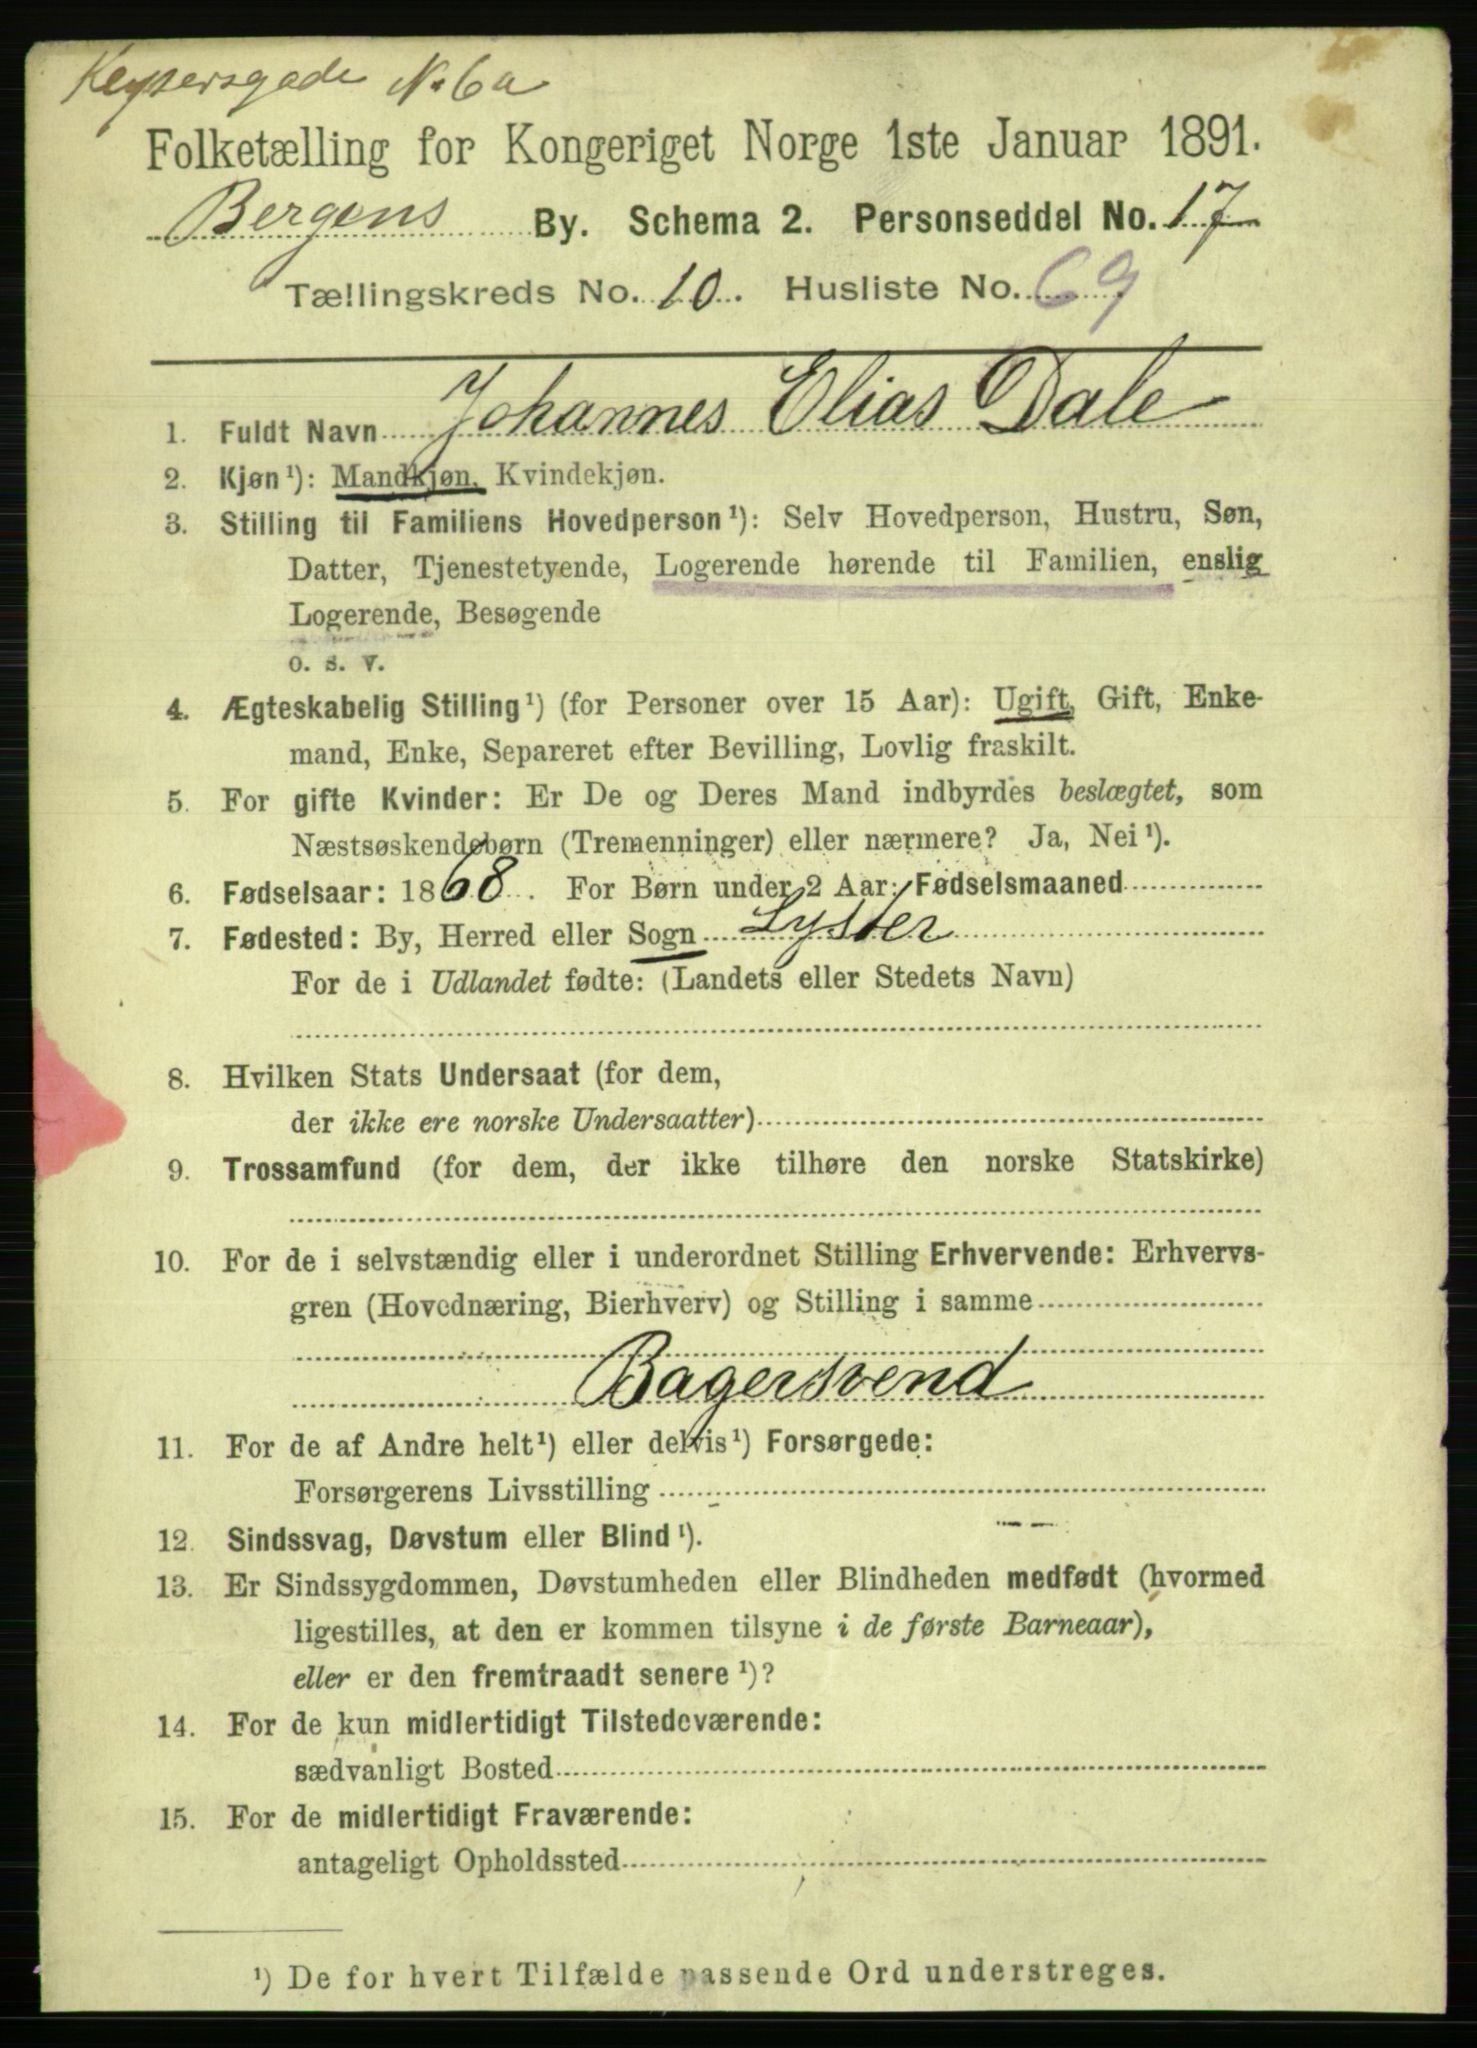 Keysersgade No 6a
Folketælling for Kongeriget Norge 1ste Januar 1891.
Bergens By. Schema 2. Personseddel No. 17
Tællingskreds No. 10. Husliste No. 69
1. Fuldt Navn Johannes Elias Dale
2. Kjøn ¹): Mandkjøn, Kvindekjøn.
3. Stilling til Familiens Hovedperson ¹): Selv Hovedperson, Hustru, Søn,
Datter, Tjenestetyende, Logerende hørende til Familien, enslig
Logerende, Besøgende
o. s. v.
4. Ægteskabelig Stilling ¹) (for Personer over 15 Aar): Ugift, Gift, Enke-
mand, Enke, Separeret efter Bevilling, Lovlig fraskilt.
5. For gifte Kvinder: Er De og Deres Mand indbyrdes beslægtet, som
Næstsøskendebørn (Tremenninger) eller nærmere? Ja, Nei ¹).
6. Fødselsaar: 1868. For Børn under 2 Aar: Fødselsmaaned
7. Fødested: By, Herred eller Sogn Lyster
For de i Udlandet fødte: (Landets eller Stedets Navn)
8. Hvilken Stats Undersaat (for dem,
der ikke ere norske Undersaatter)
9. Trossamfund (for dem, der ikke tilhøre den norske Statskirke)
10. For de i selvstændig eller i underordnet Stilling Erhvervende: Erhvervs-
gren (Hovednæring, Bierhverv) og Stilling i samme
Bagersvend
11. For de af Andre helt ¹) eller delvis ¹) Forsørgede:
Forsørgerens Livsstilling
12. Sindssvag, Døvstum eller Blind ¹).
13. Er Sindssygdommen, Døvstumheden eller Blindheden medfødt (hvormed
ligestilles, at den er kommen tilsyne i de første Barneaar),
eller er den fremtraadt senere ¹)?
14. For de kun midlertidigt Tilstedeværende:
sædvanligt Bosted
15. For de midlertidigt Fraværende:
antageligt Opholdssted
¹) De for hvert Tilfælde passende Ord understreges.